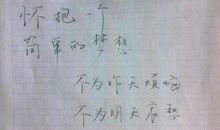 怀抱一个
简单的梦想
不为昨天烦恼
不为明天启愁